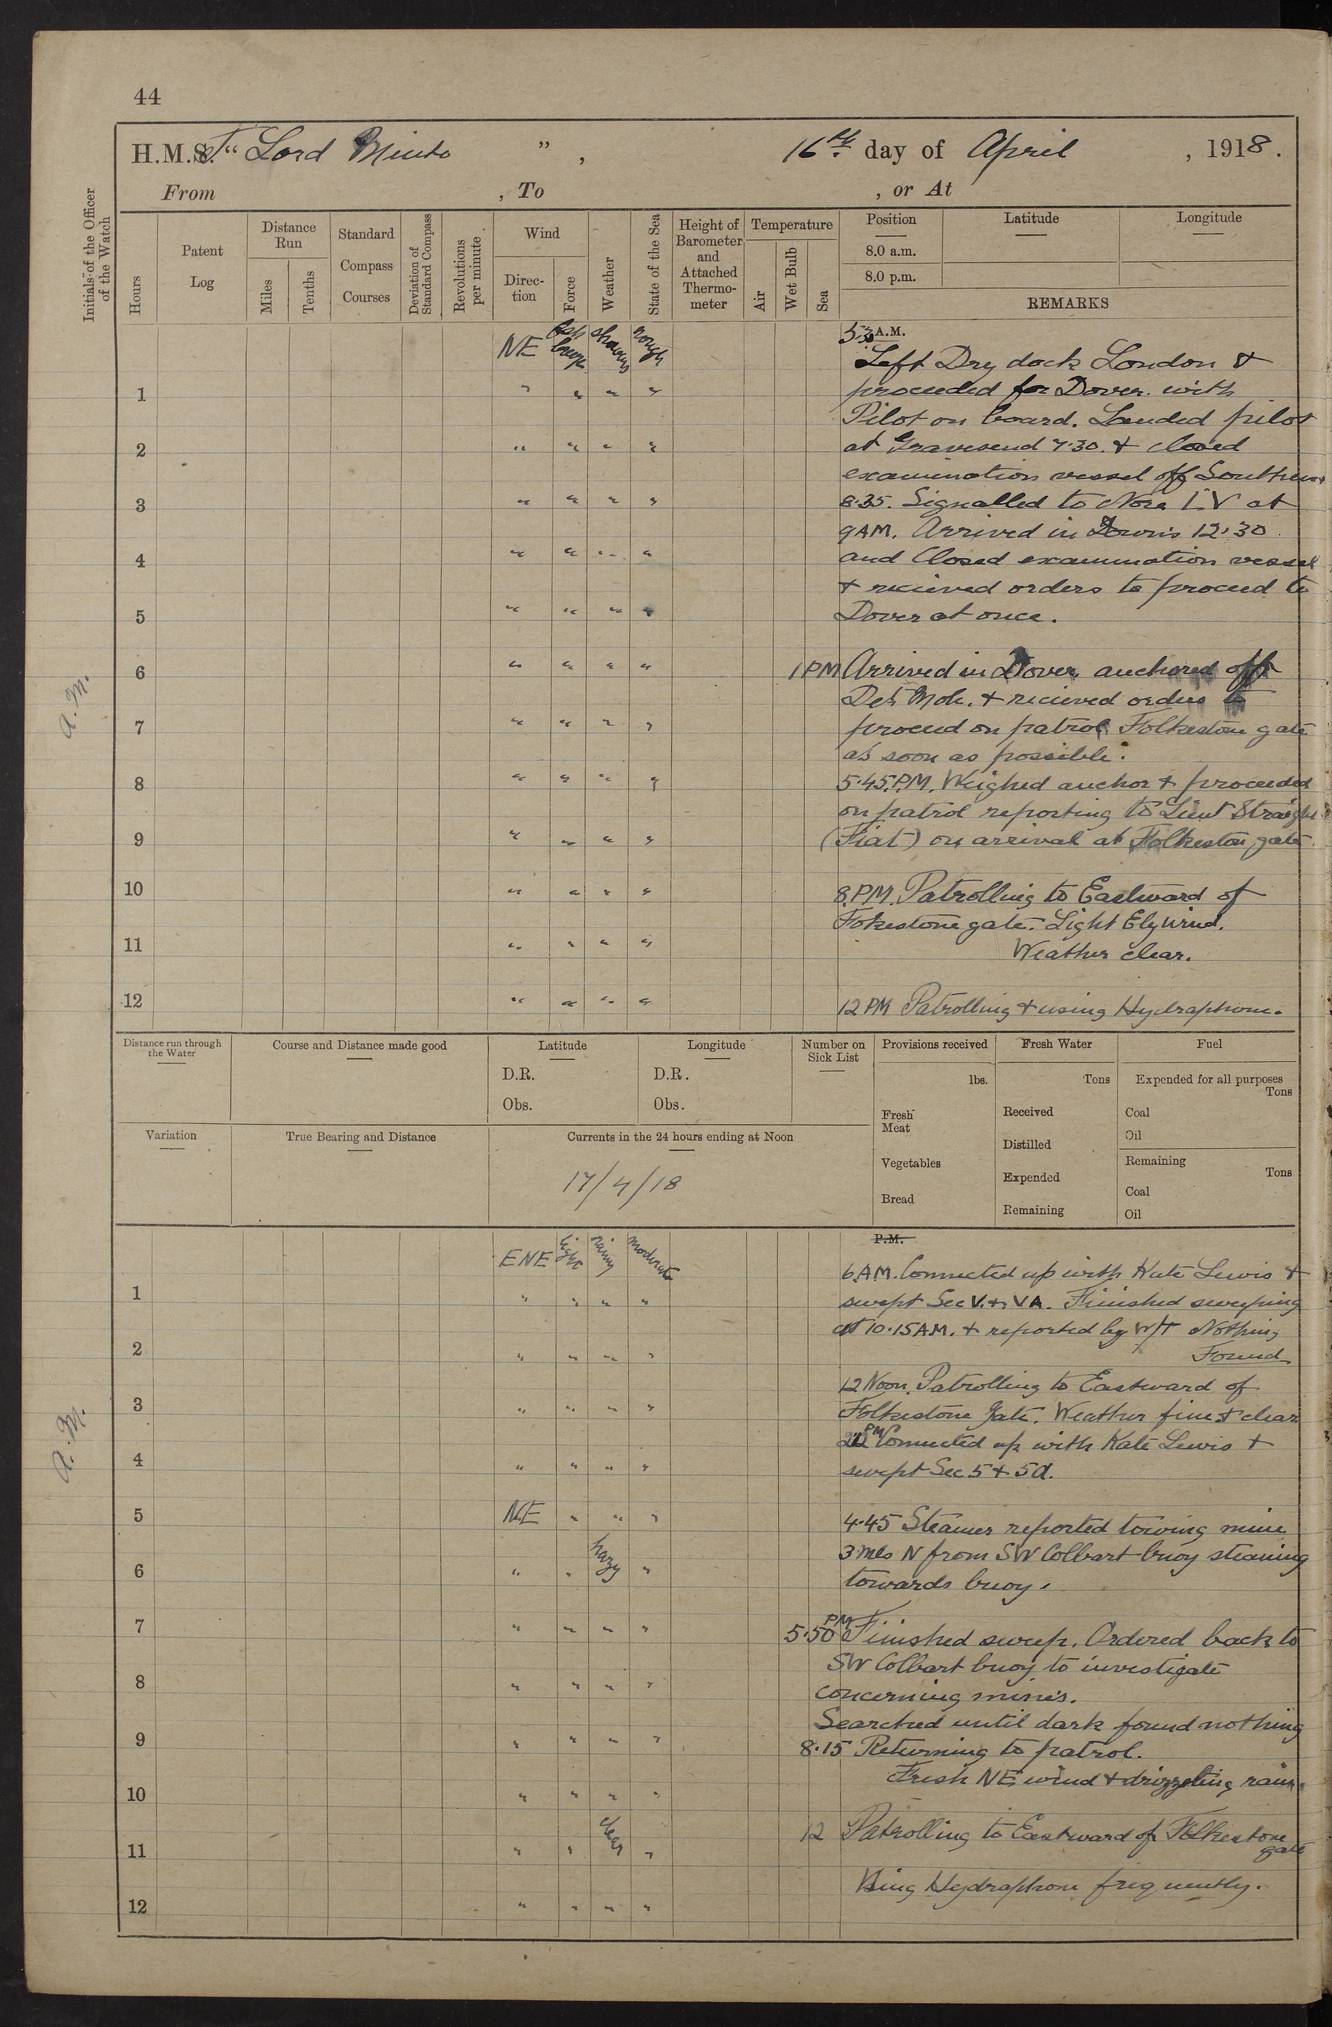 44
H.M.S.T "Lord Minto ", 16th day of April, 1918.
From , To , or At
Initials of the Officer of the Watch
Hours
Patent Log
Distance Run
Miles
Tenths
Standard Compass Courses
Deviation of Standard Compass
Revolutions per minute
Wind
Direction
Force
Weather
State of the Sea
Height of Barometer and Attached Thermometer
Temperature
Air
Wet Bulb
Sea
Position Latitude Longitude
8.0 a.m.
8.0 p.m.
REMARKS
A.M.
NE fresh breeze showery rough
5.30 A.M.
Left Dry dock London &
1 " " " " proceeded for Dover. with
Pilot on board. Landed pilot
2 " " " " at Gravesend 7.30. & closed
examination vessel off Southend
3 " " " " 8.35. Signalled to Nore LV at
9AM. Arrived in Downs 12.30
4 " " " " and Closed examination vessel
& recieved orders to proceed to
5 " " " " Dover at once.
6 " " " " 1PM Arrived in Dover, anchored off
Det Mole. & recieved orders to
7 " " " " proceed on patrol Folkestone gate
as soon as possible.
8 " " " " 5.45.P.M. Weighed anchor & proceeded
on patrol reporting to Lieut
9 " " " " (Fiat) on arrival at Folkeston gate.
10 " " " " 8.P.M. Patrolling to Eastward of
Fokestone gate. Light Ely wind.
11 " " " " Weather clear.
12 " " " " 12 PM Patrolling & using Hydraphone.
Distance run through the Water
Course and Distance made good
Latitude
D.R.
Obs.
Longitude
D.R.
Obs.
Number on Sick List
Provisions received
lbs.
Fresh Meat
Vegetables
Bread
Fresh Water
Tons
Received
Distilled
Expended
Remaining
Fuel
Expended for all purposes
Tons
Coal
Oil
Remaining
Tons
Coal
Oil
Variation
True Bearing and Distance
Currents in the 24 hours ending at Noon
17/4/18
P.M.
A.M.
ENE light rainy moderate
6.AM. Connected up with Kate Lewis &
1 " " " " swept Sec V. & VA. Finished sweeping
at 10.15 A.M. & reported by W/T Nothing
2 " " " " Found
12 Noon. Patrolling to Eastward of
3 " " " " Folkestone Gate. Weather fine & clear
PM Connected up with Kate Lewis &
4 " " " " swept Sec 5 & 5a.
5 NE " " " 4.45 Steamer reported towing mine
3 mls N from SW Colbart buoy steaming
6 " " hazy " towards buoy.
7 " " " " 5.50 PM Finished sweep. Ordered back to
SW Colbart buoy to investigate
8 " " " " concerning mines.
Searched until dark found nothing
9 " " " " 8.15 Returning to patrol.
Fresh NE wind & drizzeling rain.
10 " " " "
11 " " clear " 12 Patrolling to Eastward of Folkestone
gate
Using Hydraphone frequently.
12 " " " "